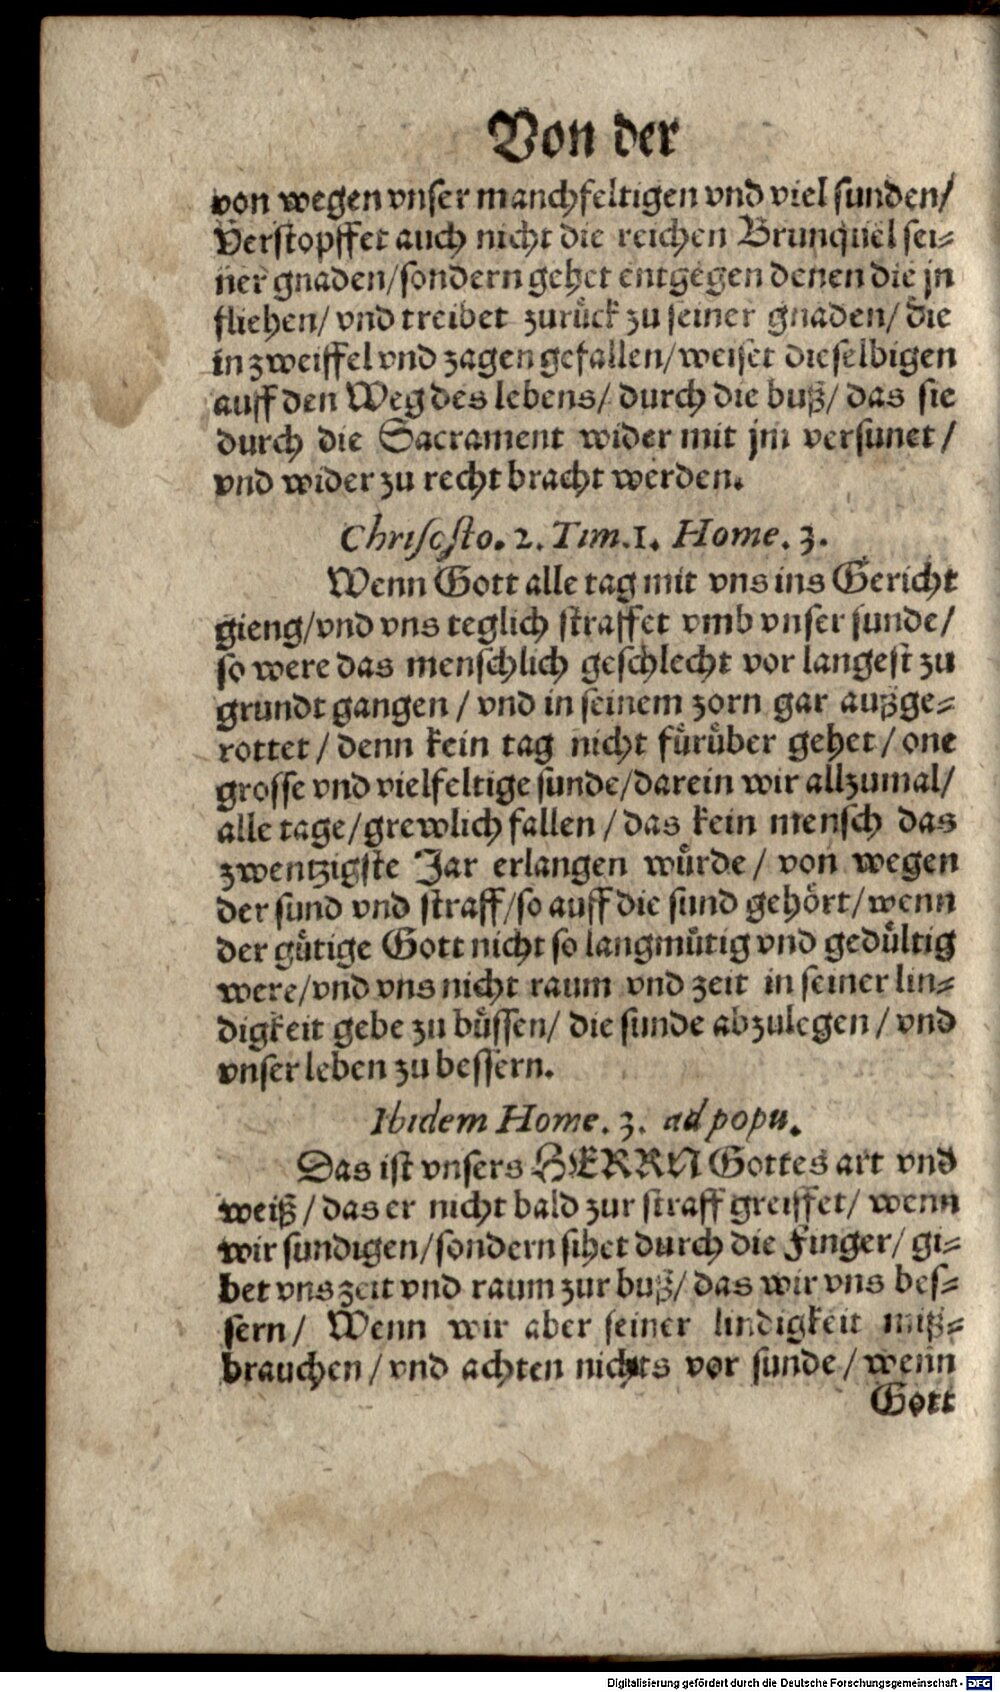 Von der
von wegen vnser manchfeltigen vnd viel sunden/
Verstopffet auch nicht die reichen Brunquel sei⸗
ner gnaden/sondern gehet entgegen denen die jn
fliehen/ vnd treibet zurück zu seiner gnaden/ die
in zweiffel vnd zagen gefallen/weiset dieselbigen
auff den Weg des lebens/ durch die buß/ das sie
durch die Sacrament wider mit jm versunet/
vnd wider zu recht bracht werden.
Chrisosto. 2. Tim.1. Home. 3.
Wenn Gott alle tag mit vns ins Gericht
gieng/vnd vns teglich straffet vmb vnser sunde/
so were das menschlich geschlecht vor langest zu
grundt gangen / vnd in seinem zorn gar außge⸗
rottet / denn kein tag nicht fürüber gehet/ one
grosse vnd vielfeltige sunde/darein wir allzumal/
alle tage/grewlich fallen / das kein mensch das
zwentzigste Jar erlangen würde / von wegen
der sund vnd straff/so auff die sund gehört/wenn
der gütige Gott nicht so langmütig vnd gedültig
were/vnd vns nicht raum vnd zeit in seiner lin⸗
digkeit gebe zu büssen/ die sunde abzulegen / vnd
vnser leben zu bessern.
Ibidem Home. 3. ad popu.
Das ist vnsers HERRN Gottes art vnd
weiß / das er nicht bald zur straff greiffet/ wenn
wir sundigen/sondern sihet durch die Finger/ gi⸗
bet vns zeit vnd raum zur buß/ das wir vns bes⸗
sern/ Wenn wir aber seiner lindigkeit miß⸗
brauchen / vnd achten nichts vor sunde / wenn
Gott
Digitalisierung gefördert durch die Deutsche Forschungsgemeinschaft - DFG